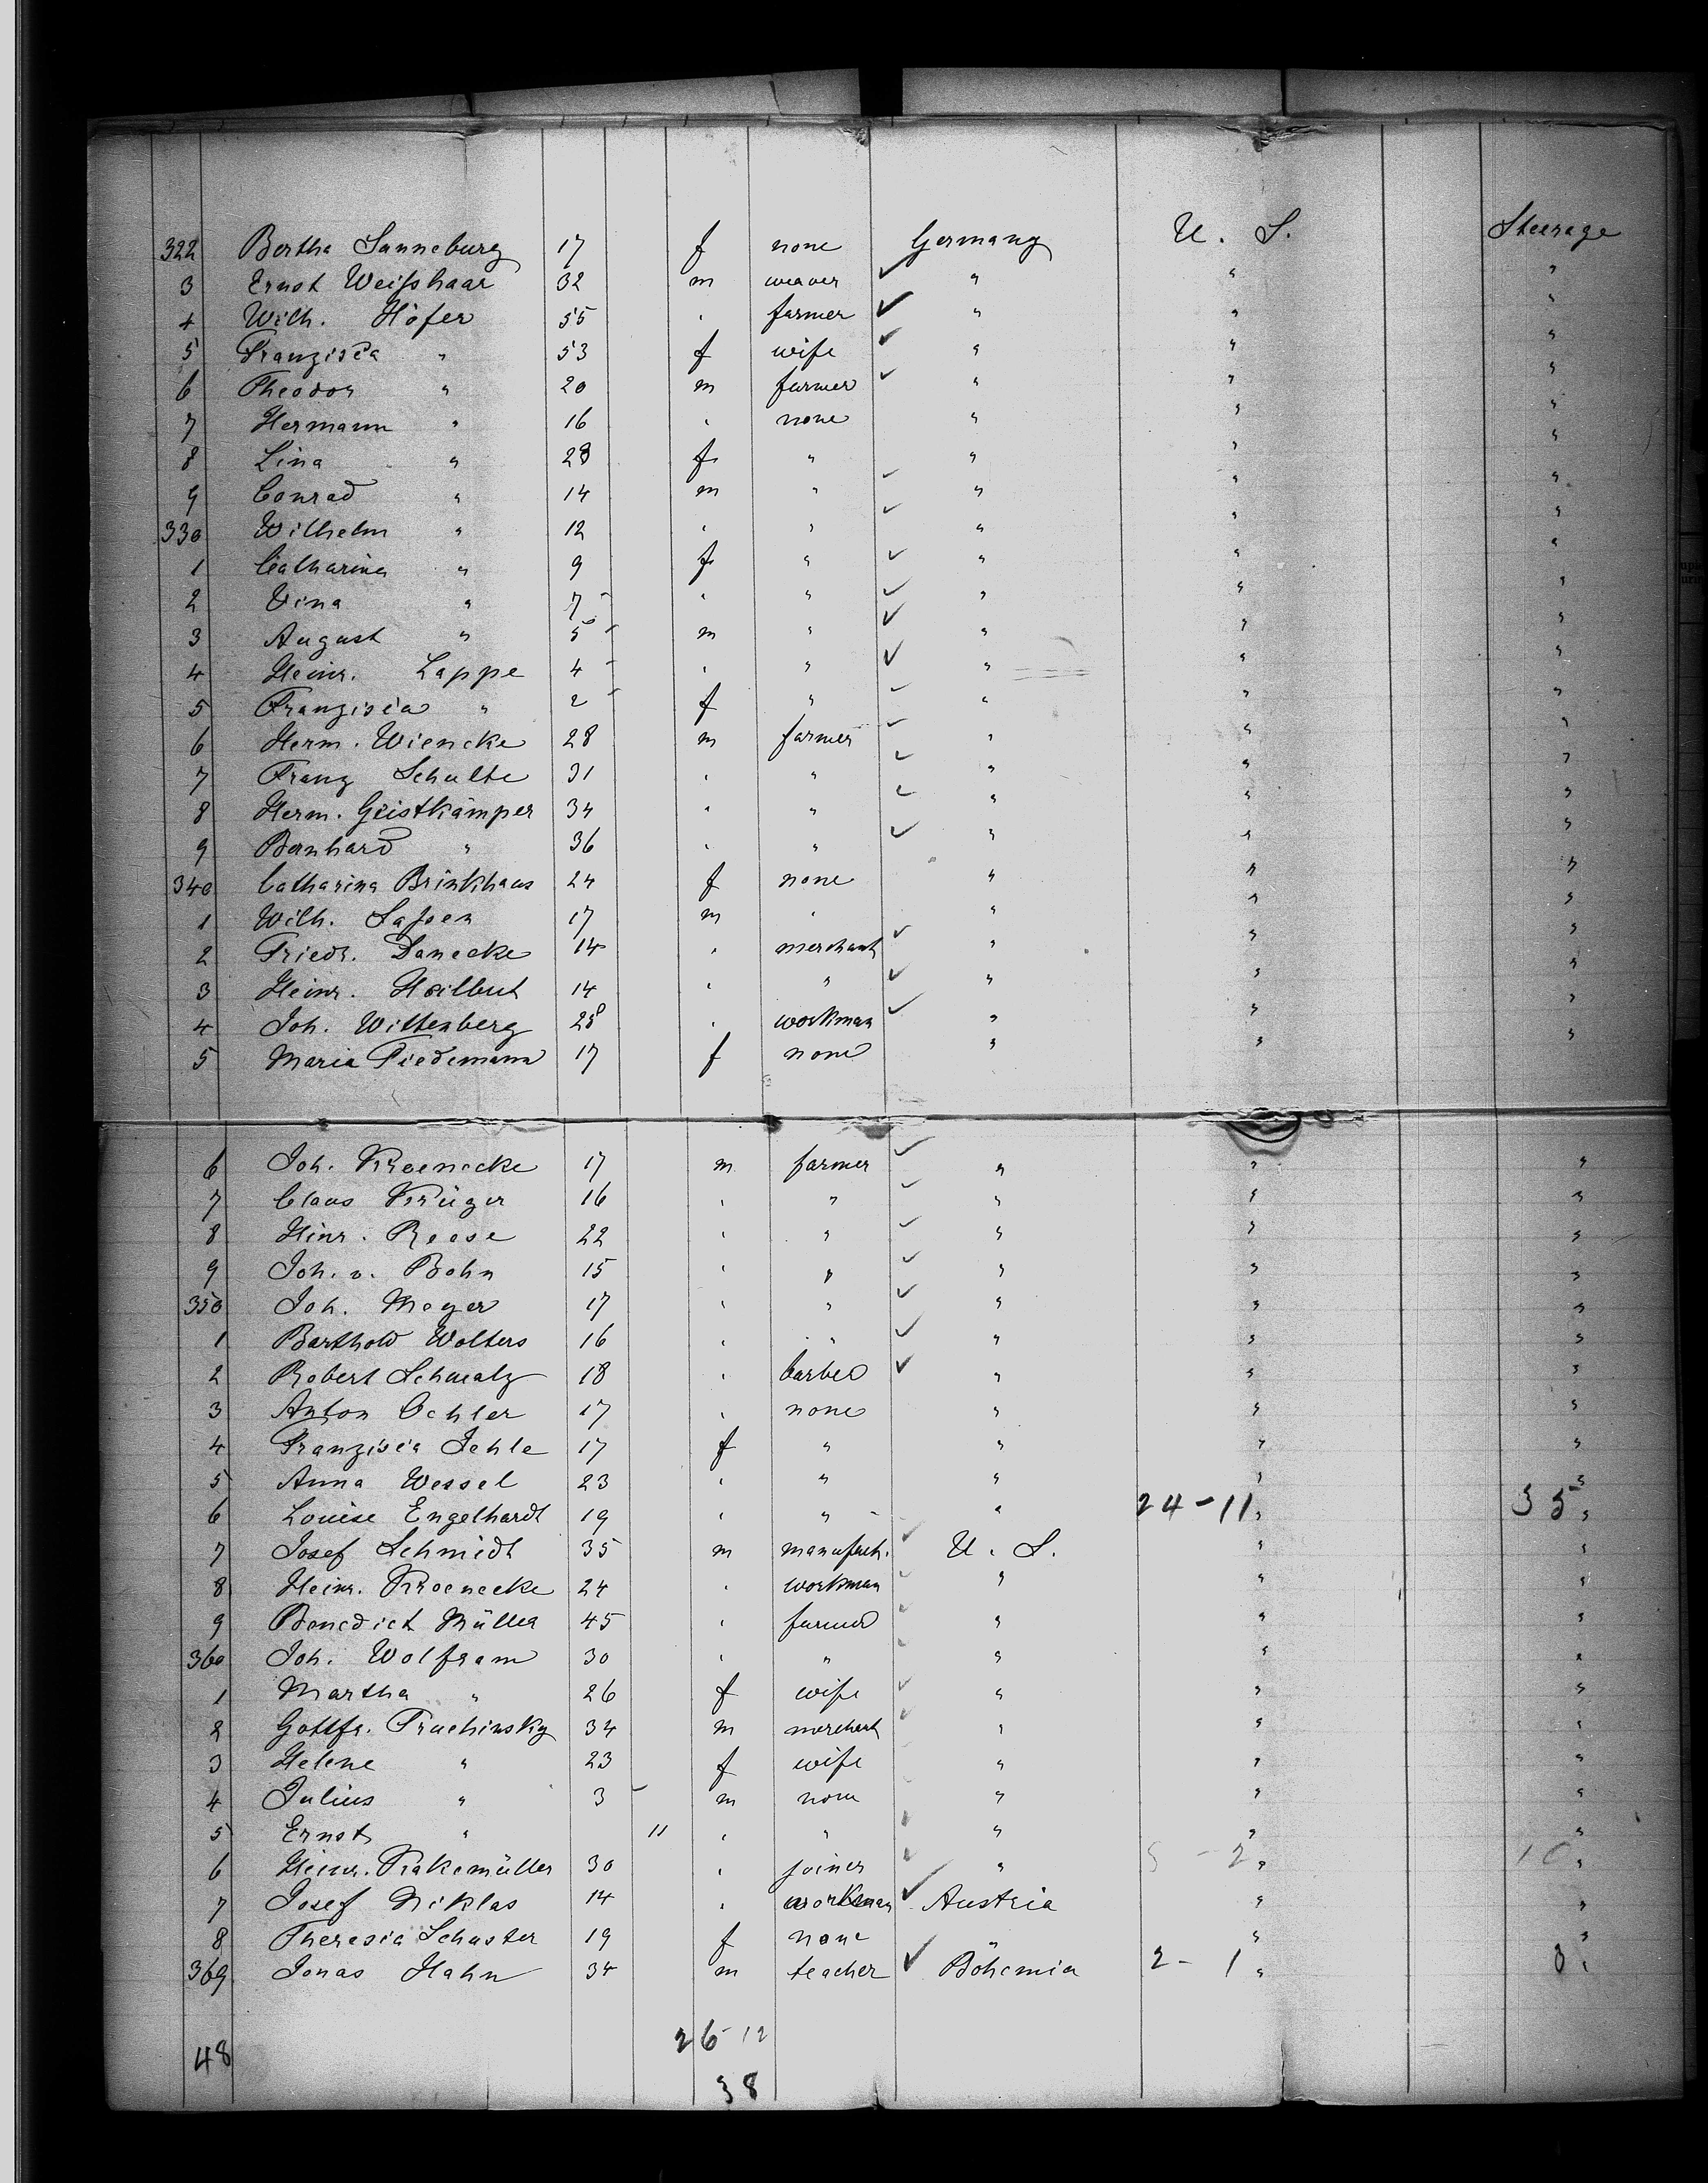 322 Bertha Sanneburg 17 f none Germany U. S. Steerage
3 Ernst Weifshaar 32 m weaver ✓ " " "
4 Wilh. Höfer 55 " farmer ✓ " " "
5 Franzisca " 53 f wife ✓ " " "
6 Theodor " 20 m farmer ✓ " " "
7 Hermann " 16 " none " " "
8 Lina " 23 f " " " "
9 Conrad " 14 m " ✓ " " "
330 Wilhelm " 12 " " ✓ " " "
1 Catharina " 9 f " ✓ " " "
2 Dina " 7 " " ✓ " " "
3 August " 5 m " ✓ " " "
4 Heinr. Lappe 4 " " ✓ " " "
5 Franzisca " 2 f " ✓ " " "
6 Herm. Wiencke 28 m farmer ✓ " " "
7 Franz Schulte 31 " " ✓ " " "
8 Herm. Geistkämper 34 " " ✓ " " "
9 Bernhard " 36 " " ✓ " " "
340 Catharina Brinkhaus 24 f none " " "
1 Wilh. Lafsen 17 m " " " "
2 Friedr. Danecke 14 " merchant ✓ " " "
3 Heinr. Heilbut 14 " " ✓ " " "
4 Joh. Wittenberg 28 " workman ✓ " " "
5 Maria Tiedemann 17 f none " " "
6 Joh. Kroenecke 17 m farmer ✓ " " "
7 Claus Krüger 16 " " ✓ " " "
8 Hinr. Reese 22 " " ✓ " " "
9 Joh. v. Bohn 15 " " ✓ " " "
350 Joh. Meyer 17 " " ✓ " " "
1 Barthold Wolters 16 " " ✓ " " "
2 Robert Schmalz 18 " barber ✓ " " "
3 Anton Oehler 17 " none " " "
4 Franzisca Jehle 17 f " " " "
5 Anna Wessel 23 " " " " "
6 Louise Engelhardt 19 " " " 24-11 " 35 "
7 Josef Schmidt 35 m manufact. ✓ U. S. " "
8 Heinr. Kroenecke 24 " workman ✓ " " "
9 Benedict Müller 45 " farmer ✓ " " "
360 Joh. Wolfram 30 " " ✓ " " "
1 Martha " 26 f wife ✓ " " "
2 Gottfr. Pruchinsky 34 m merchant ✓ " " "
3 Helene " 23 f wife " " "
4 Julius " 3 m none " " "
5 Ernst " 11 " " " " "
6 Heinr. Rakemüller 30 " joiner ✓ " 5-2 " 10 "
7 Josef Niklas 14 " workman ✓ Austria " "
8 Theresia Schuster 19 f none " " "
369 Jonas Hahn 34 m teacher ✓ Böhemia 2-1 " 3 "
26-12
48
38